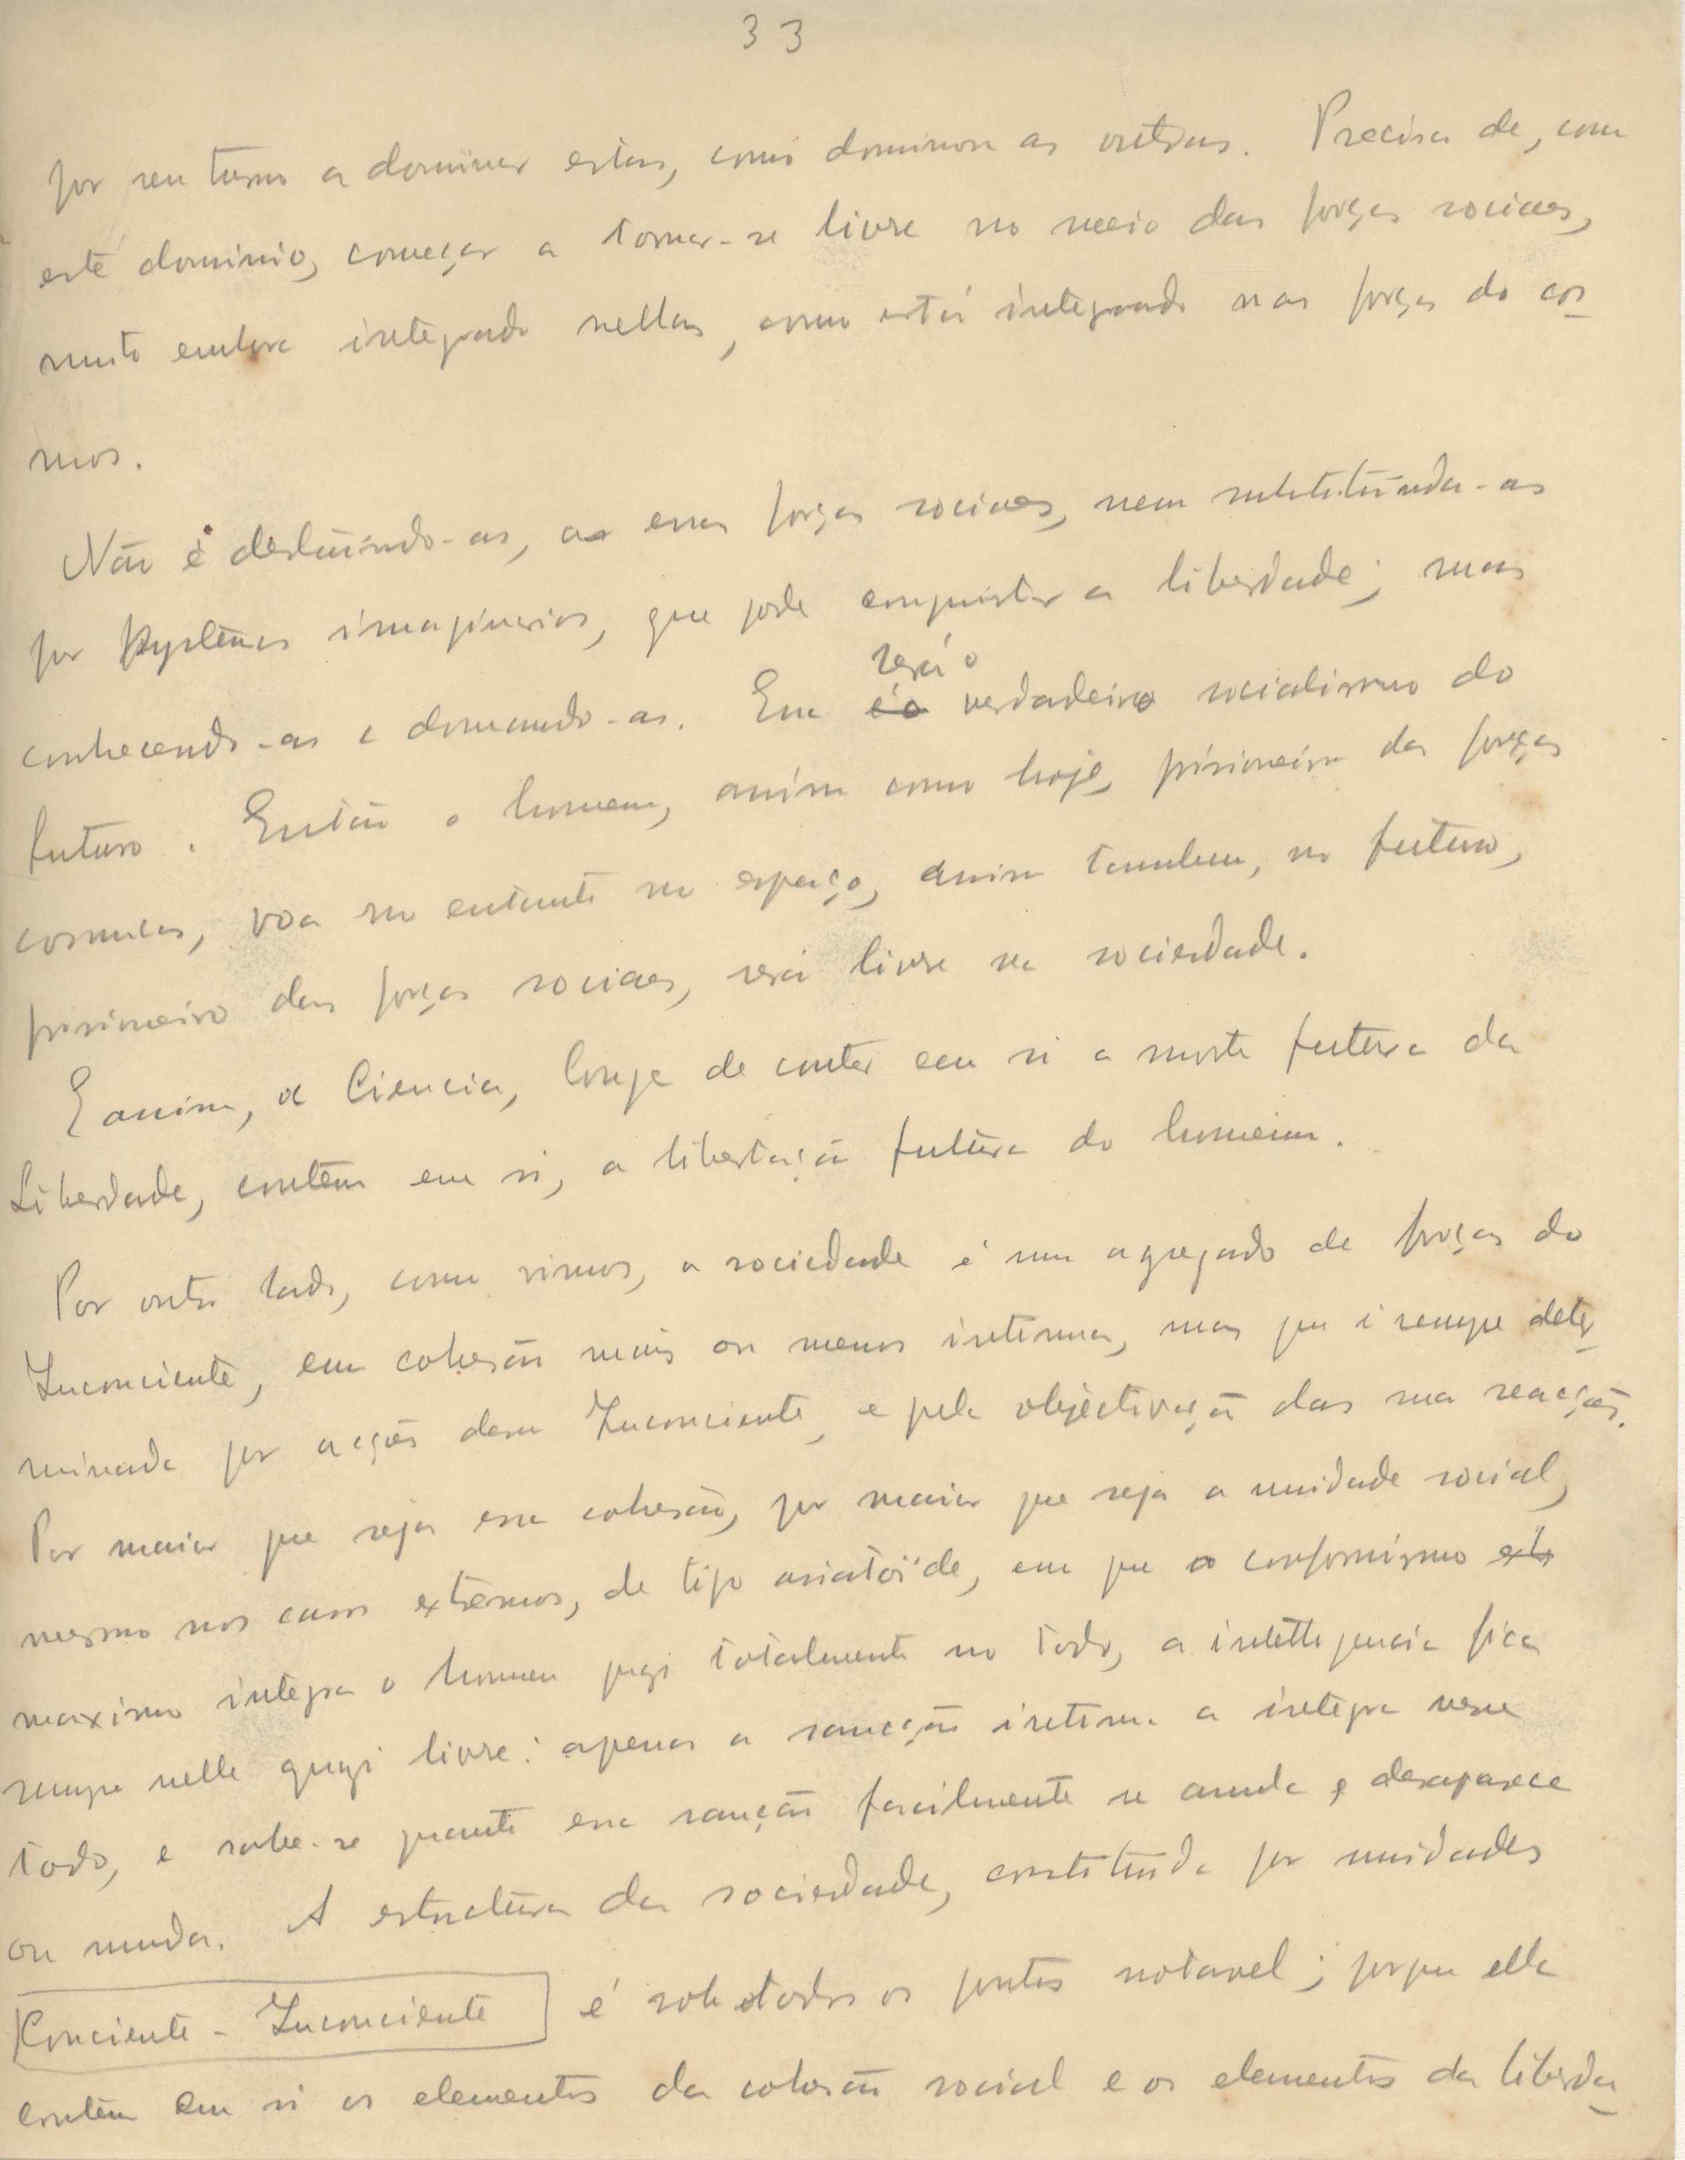 33
por seu turno a dominar estas, como dominou as outras. Precisa de, com
este dominio, começar a tornar-se livre no meio das forças sociaes,
muito embora integrado nellas, como está integrado nas forças do cos
mos.
Não é destruindo-as, as essas forças sociaes, nem substituindo-as
por systemas imaginarios, que pode conquistar a liberdade; mas
conhecendo-as e domando-as. Esse será o verdadeiro socialismo do
futuro. Então o homem, assim como hoje, prisioneiro das forças
cosmicas, voa no entanto no espaço, assim tambem, no futuro,
prisioneiro das forças sociaes, será livre na sociedade.
E assim, a Ciencia, longe de conter em si a morte futura da
Liberdade, contêm em si, a libertação futura do homem.
Por outro lado, como vimos, a sociedade é um agregado de forças do
Inconciente, em cohesão mais ou menos intensa, mas que é sempre deter
minada por acções desse Inconciente, e pela objectivação das sua reacções.
Por maior que seja essa cohesão, por maior que seja a unidade social,
mesmo nos casos extremos, de tipo asiatoïde, em que o conformismo
maximo integra o homem quasi totalmente no todo, a intelligencia fica
sempre nelle quasi livre: apenas a sancção interna a integra nesse
todo, e sabe-se quanto essa sancção facilmente se anula e desaparece
ou muda. A estructura da sociedade, constituida por unidades
Conciente - Inconciente é sob todos os pontos notavel; porque ella
contêm em si os elementos da cohesão social e os elementos da liberda